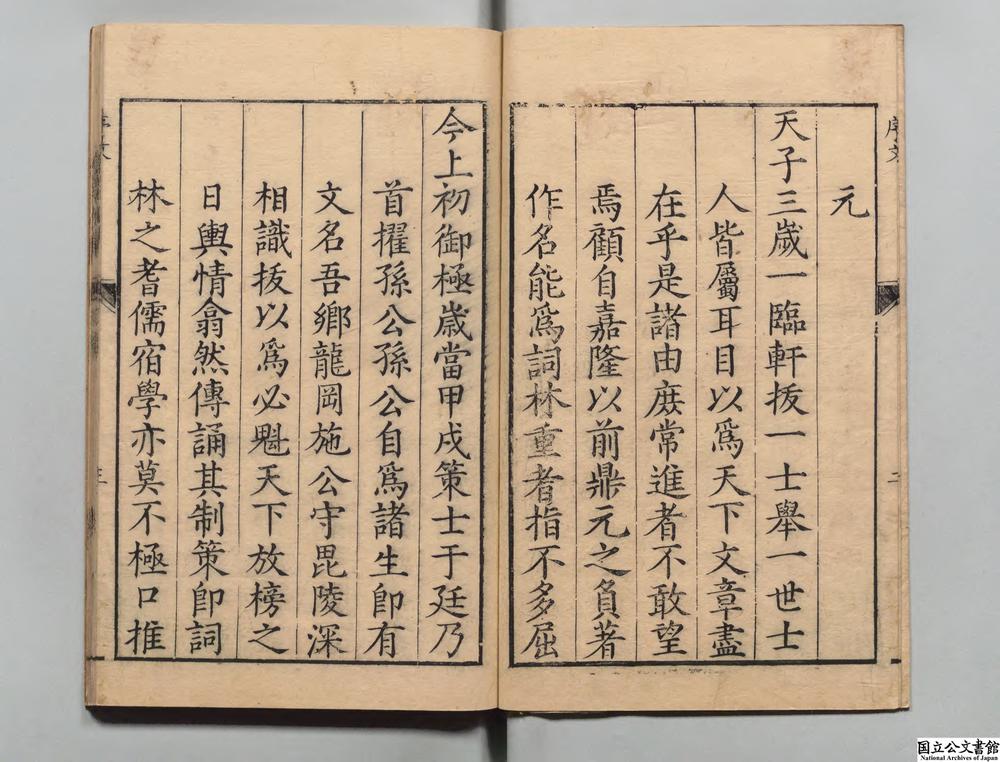 元
天子三歲一臨軒拔一士舉一世士
人皆屬耳目以爲天下文章盡
在乎是諸由庶常進者不敢望
焉顧自嘉隆以前鼎元之負著
作名能爲詞林重者指不多屈
今上初御極歲當甲戌策士于廷乃
首擢孫公孫公自爲諸生卽有
文名吾鄉龍岡施公守毘陵深
相識拔以爲必魁天下放榜之
日輿情翕然傳誦其制策卽詞
林之耆儒宿學亦莫不極口推
序文
序文
二
三
国立公文書館
National Archives of Japan